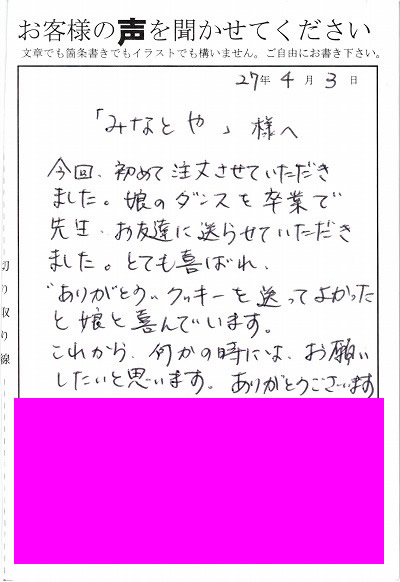 お客様の声を聞かせてください
文章でも箇条書きでもイラストでも構いません。ご自由にお書き下さい。
27年 4月 3日
「みなとや」様へ
今回、初めて注文させていただき
ました。娘のダンスを卒業で
先生、お友達に送らせていただき
ました。とても喜ばれ、
"ありがとう"クッキーを送ってよかった
と娘と喜んでいます。
これから、何かの時には、お願い
したいと思います。ありがとうございます
切り取り線